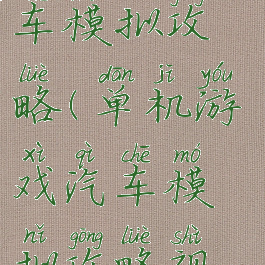 车模拟攻
lüè dān jī yóu
略(单机游
xì qì chē mó
戏汽车模
nǐ gōng lüè shì
拟攻略视